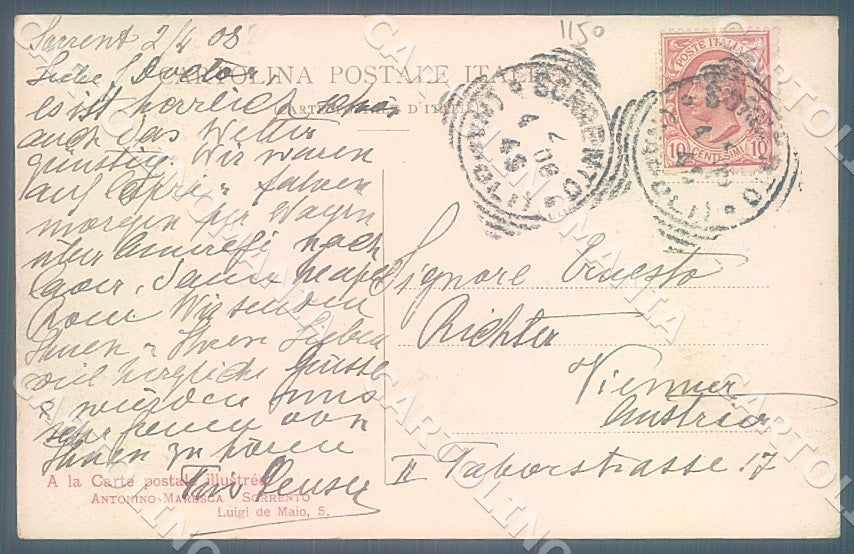 1150
Sorrent 2/4 08
Liebe Doctor,
CARTOLINA POSTALE ITALIANA
es ist herrlich schon
auch das Wetter
günstig. Wir waren
auf Capri u fahren
morgen per Wagen
über Amalfi nach
dann Neapel
Rom Wir senden
Ihnen u Ihren Lieben
viel herzliche Grüsse
& würden uns
sehr freuen von
Ihnen zu hören
POSTE ITALIANE
10 CENTESIMI 10
SORRENTO
(NAPOLI)
SORRENTO
(NAPOLI)
Signore Ernesto
Richter
Vienna
Austria
II Taborstrasse 17
A la Carte postale illustrée
ANTONINO MARESCA SORRENTO
Luigi de Maio, 5.
CARTOLINOMANIA